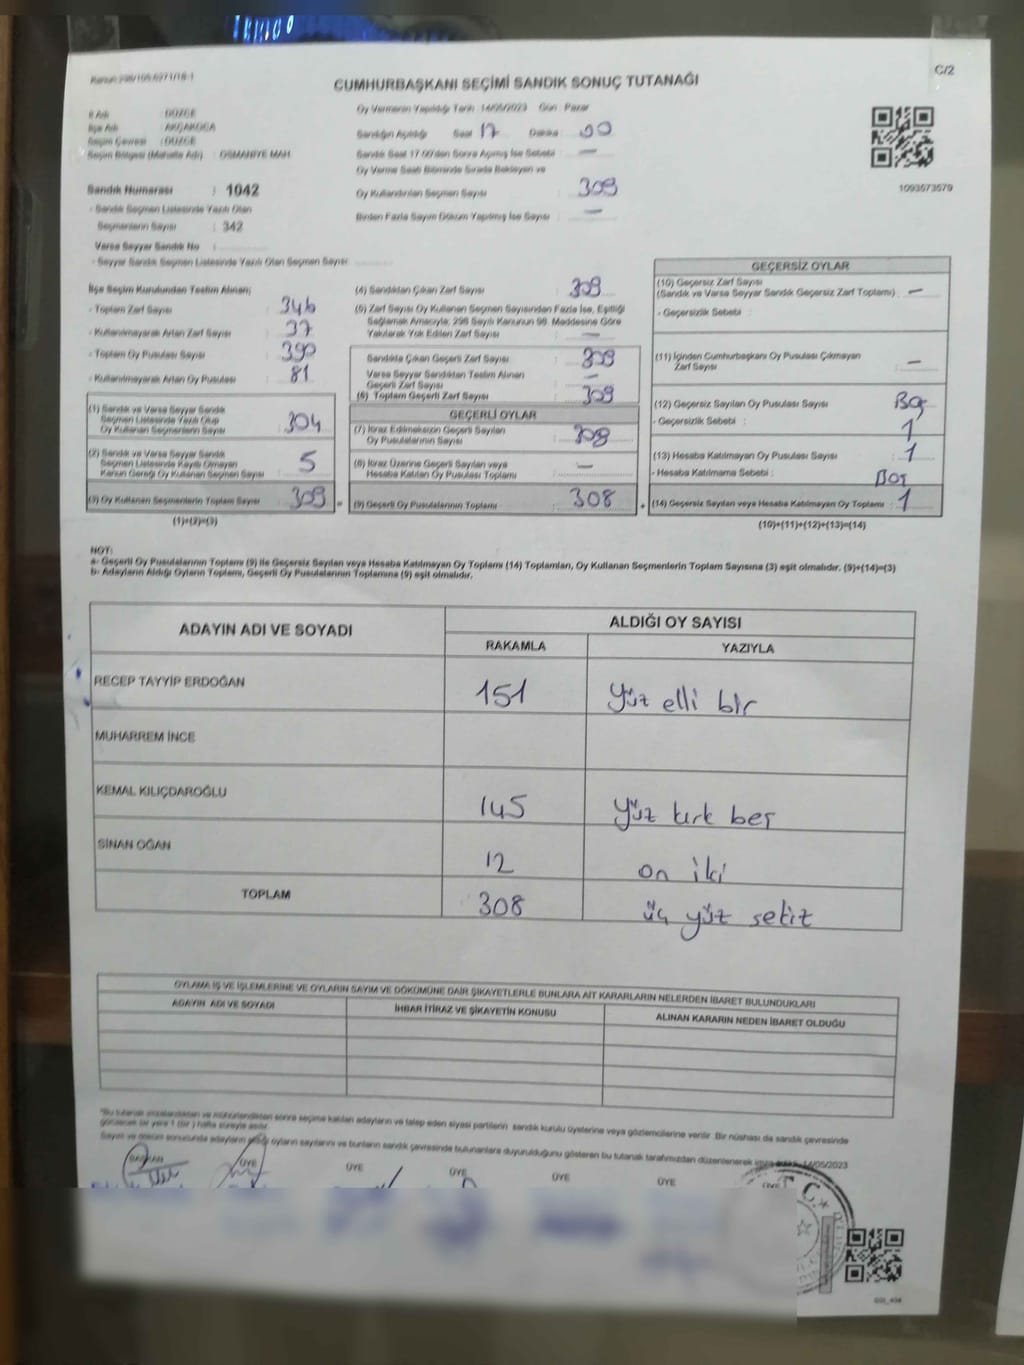 Kanun: 298/105,6271/18-1
C/2
CUMHURBAŞKANI SEÇİMİ SANDIK SONUÇ TUTANAĞI
İl Adı : DÜZCE
İlçe Adı : AKÇAKOCA
Seçim Çevresi : DÜZCE
Seçim Bölgesi (Mahalle Adı) : OSMANİYE MAH.
Sandık Numarası : 1042
- Sandık Seçmen Listesinde Yazılı Olan
Seçmenlerin Sayısı : 342
Varsa Seyyar Sandık No :
- Seyyar Sandık Seçmen Listesinde Yazılı Olan Seçmen Sayısı
Oy Vermenin Yapıldığı Tarih 14/05/2023 Gün Pazar
Sandığın Açıldığı Saat 17 Dakika 00
Sandık Saat 17.00'den Sonra Açılmış İse Sebebi : —
Oy Verme Saati Bitiminde Sırada Bekleyen ve
Oy Kullandırılan Seçmen Sayısı : 309
Birden Fazla Sayım Döküm Yapılmış İse Sayısı : —
1093573579
İlçe Seçim Kurulundan Teslim Alınan;
- Toplam Zarf Sayısı : 346
- Kullanılmayarak Artan Zarf Sayısı : 37
- Toplam Oy Pusulası Sayısı : 390
- Kullanılmayarak Artan Oy Pusulası : 81
(1) Sandık ve Varsa Seyyar Sandık
Seçmen Listesinde Yazılı Olup
Oy Kullanan Seçmenlerin Sayısı : 304
(2) Sandık ve Varsa Seyyar Sandık
Seçmen Listesinde Kayıtlı Olmayan
Kanun Gereği Oy Kullanan Seçmen Sayısı : 5
(3) Oy Kullanan Seçmenlerin Toplam Sayısı : 309
(1)+(2)=(3)
(4) Sandıktan Çıkan Zarf Sayısı : 309
(5) Zarf Sayısı Oy Kullanan Seçmen Sayısından Fazla İse, Eşitliği
Sağlamak Amacıyla; 298 Sayılı Kanunun 98. Maddesine Göre
Yakılarak Yok Edilen Zarf Sayısı : —
Sandıkta Çıkan Geçerli Zarf Sayısı : 309
Varsa Seyyar Sandıktan Teslim Alınan
Geçerli Zarf Sayısı : —
(6) Toplam Geçerli Zarf Sayısı : 309
GEÇERLİ OYLAR
(7) İtiraz Edilmeksizin Geçerli Sayılan
Oy Pusulalarının Sayısı : 308
(8) İtiraz Üzerine Geçerli Sayılan veya
Hesaba Katılan Oy Pusulası Toplamı : —
(9) Geçerli Oy Pusulalarının Toplamı : 308
GEÇERSİZ OYLAR
(10) Geçersiz Zarf Sayısı
(Sandık ve Varsa Seyyar Sandık Geçersiz Zarf Toplamı) : —
- Geçersizlik Sebebi :
(11) İçinden Cumhurbaşkanı Oy Pusulası Çıkmayan
Zarf Sayısı : —
(12) Geçersiz Sayılan Oy Pusulası Sayısı : Boş
- Geçersizlik Sebebi : 1
(13) Hesaba Katılmayan Oy Pusulası Sayısı : 1
- Hesaba Katılmama Sebebi : Boş
(14) Geçersiz Sayılan veya Hesaba Katılmayan Oy Toplamı : 1
(10)+(11)+(12)+(13)=(14)
NOT:
a- Geçerli Oy Pusulalarının Toplamı (9) ile Geçersiz Sayılan veya Hesaba Katılmayan Oy Toplamı (14) Toplamları, Oy Kullanan Seçmenlerin Toplam Sayısına (3) eşit olmalıdır. (9)+(14)=(3)
b- Adayların Aldığı Oyların Toplamı, Geçerli Oy Pusulalarının Toplamına (9) eşit olmalıdır.
ADAYIN ADI VE SOYADI
ALDIĞI OY SAYISI
RAKAMLA YAZIYLA
RECEP TAYYİP ERDOĞAN 151 yüz elli bir
MUHARREM İNCE
KEMAL KILIÇDAROĞLU 145 yüz kırk beş
SİNAN OĞAN 12 on iki
TOPLAM 308 üç yüz sekiz
OYLAMA İŞ VE İŞLEMLERİNE VE OYLARIN SAYIM VE DÖKÜMÜNE DAİR ŞİKAYETLERLE BUNLARA AİT KARARLARIN NELERDEN İBARET BULUNDUKLARI
ADAYIN ADI VE SOYADI
İHBAR İTİRAZ VE ŞİKAYETİN KONUSU
ALINAN KARARIN NEDEN İBARET OLDUĞU
*Bu tutanak imzalandıktan ve mühürlendikten sonra seçime katılan adayların ve talep eden siyasi partilerin sandık kurulu üyelerine veya gözlemcilerine verilir. Bir nüshası da sandık çevresinde
görülecek bir yere 1 (bir) hafta süreyle asılır.
Sayım ve döküm sonucunda adayların aldığı oyların sayılarını ve bunların sandık çevresinde bulunanlara duyurulduğunu gösteren bu tutanak tarafımızdan düzenlenerek 14/05/2023
BAŞKAN ÜYE ÜYE ÜYE ÜYE ÜYE ÜYE
T.C.